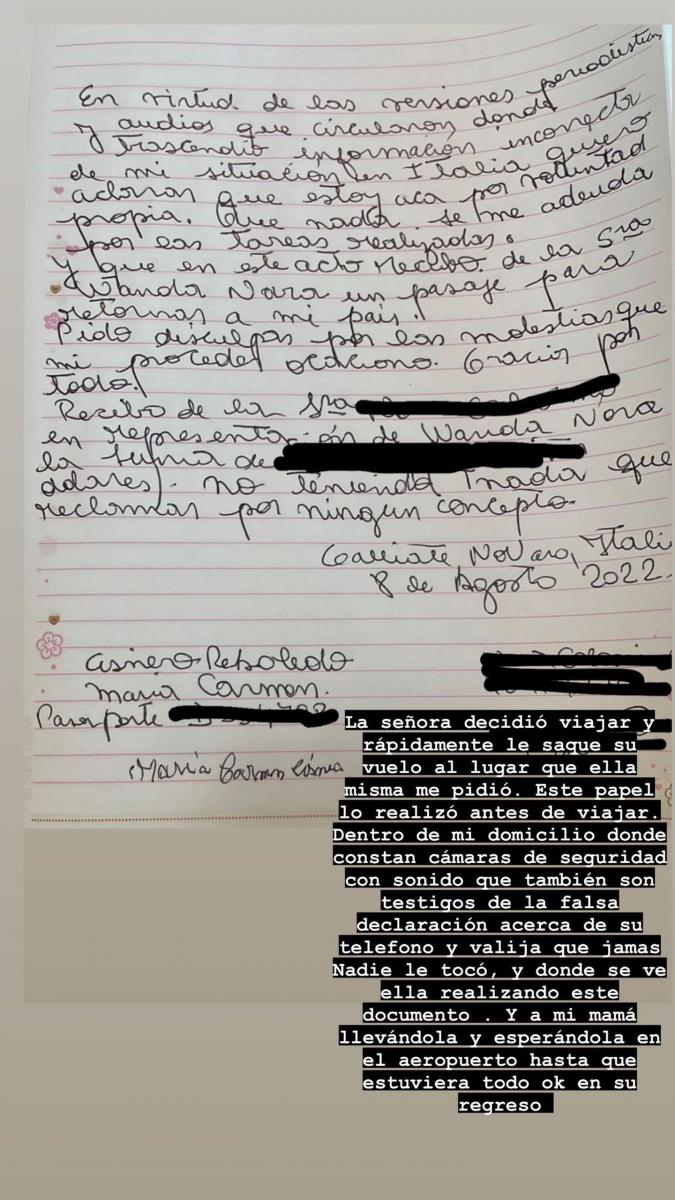 En virtud de las versiones periodisticas
y audios que circularon donde
trascendió información incorrecta
de mi situación en Italia quiero
aclarar que estoy aca por voluntad
propia. Que nada se me adeuda
por las tareas realizadas.
Y que en este acto recibo de la Sra
Wanda Nara un pasaje para
retornar a mi pais.
Pido disculpas por las molestias que
mi proceder ocaciono. Gracias por
todo.
Recibo de la Sra
en representación de Wanda Nara
la suma de
dolares. no teniendo nada que
reclamar por ningun concepto.
Galliate Novara, Itali
8 de Agosto 2022.
Cisnero Rebolledo
Maria Carmen.
Pasaporte
Maria Carmen Cisne
La señora decidió viajar y
rápidamente le saque su
vuelo al lugar que ella
misma me pidió. Este papel
lo realizó antes de viajar.
Dentro de mi domicilio donde
constan cámaras de seguridad
con sonido que también son
testigos de la falsa
declaración acerca de su
telefono y valija que jamas
Nadie le tocó, y donde se ve
ella realizando este
documento . Y a mi mamá
llevándola y esperándola en
el aeropuerto hasta que
estuviera todo ok en su
regreso